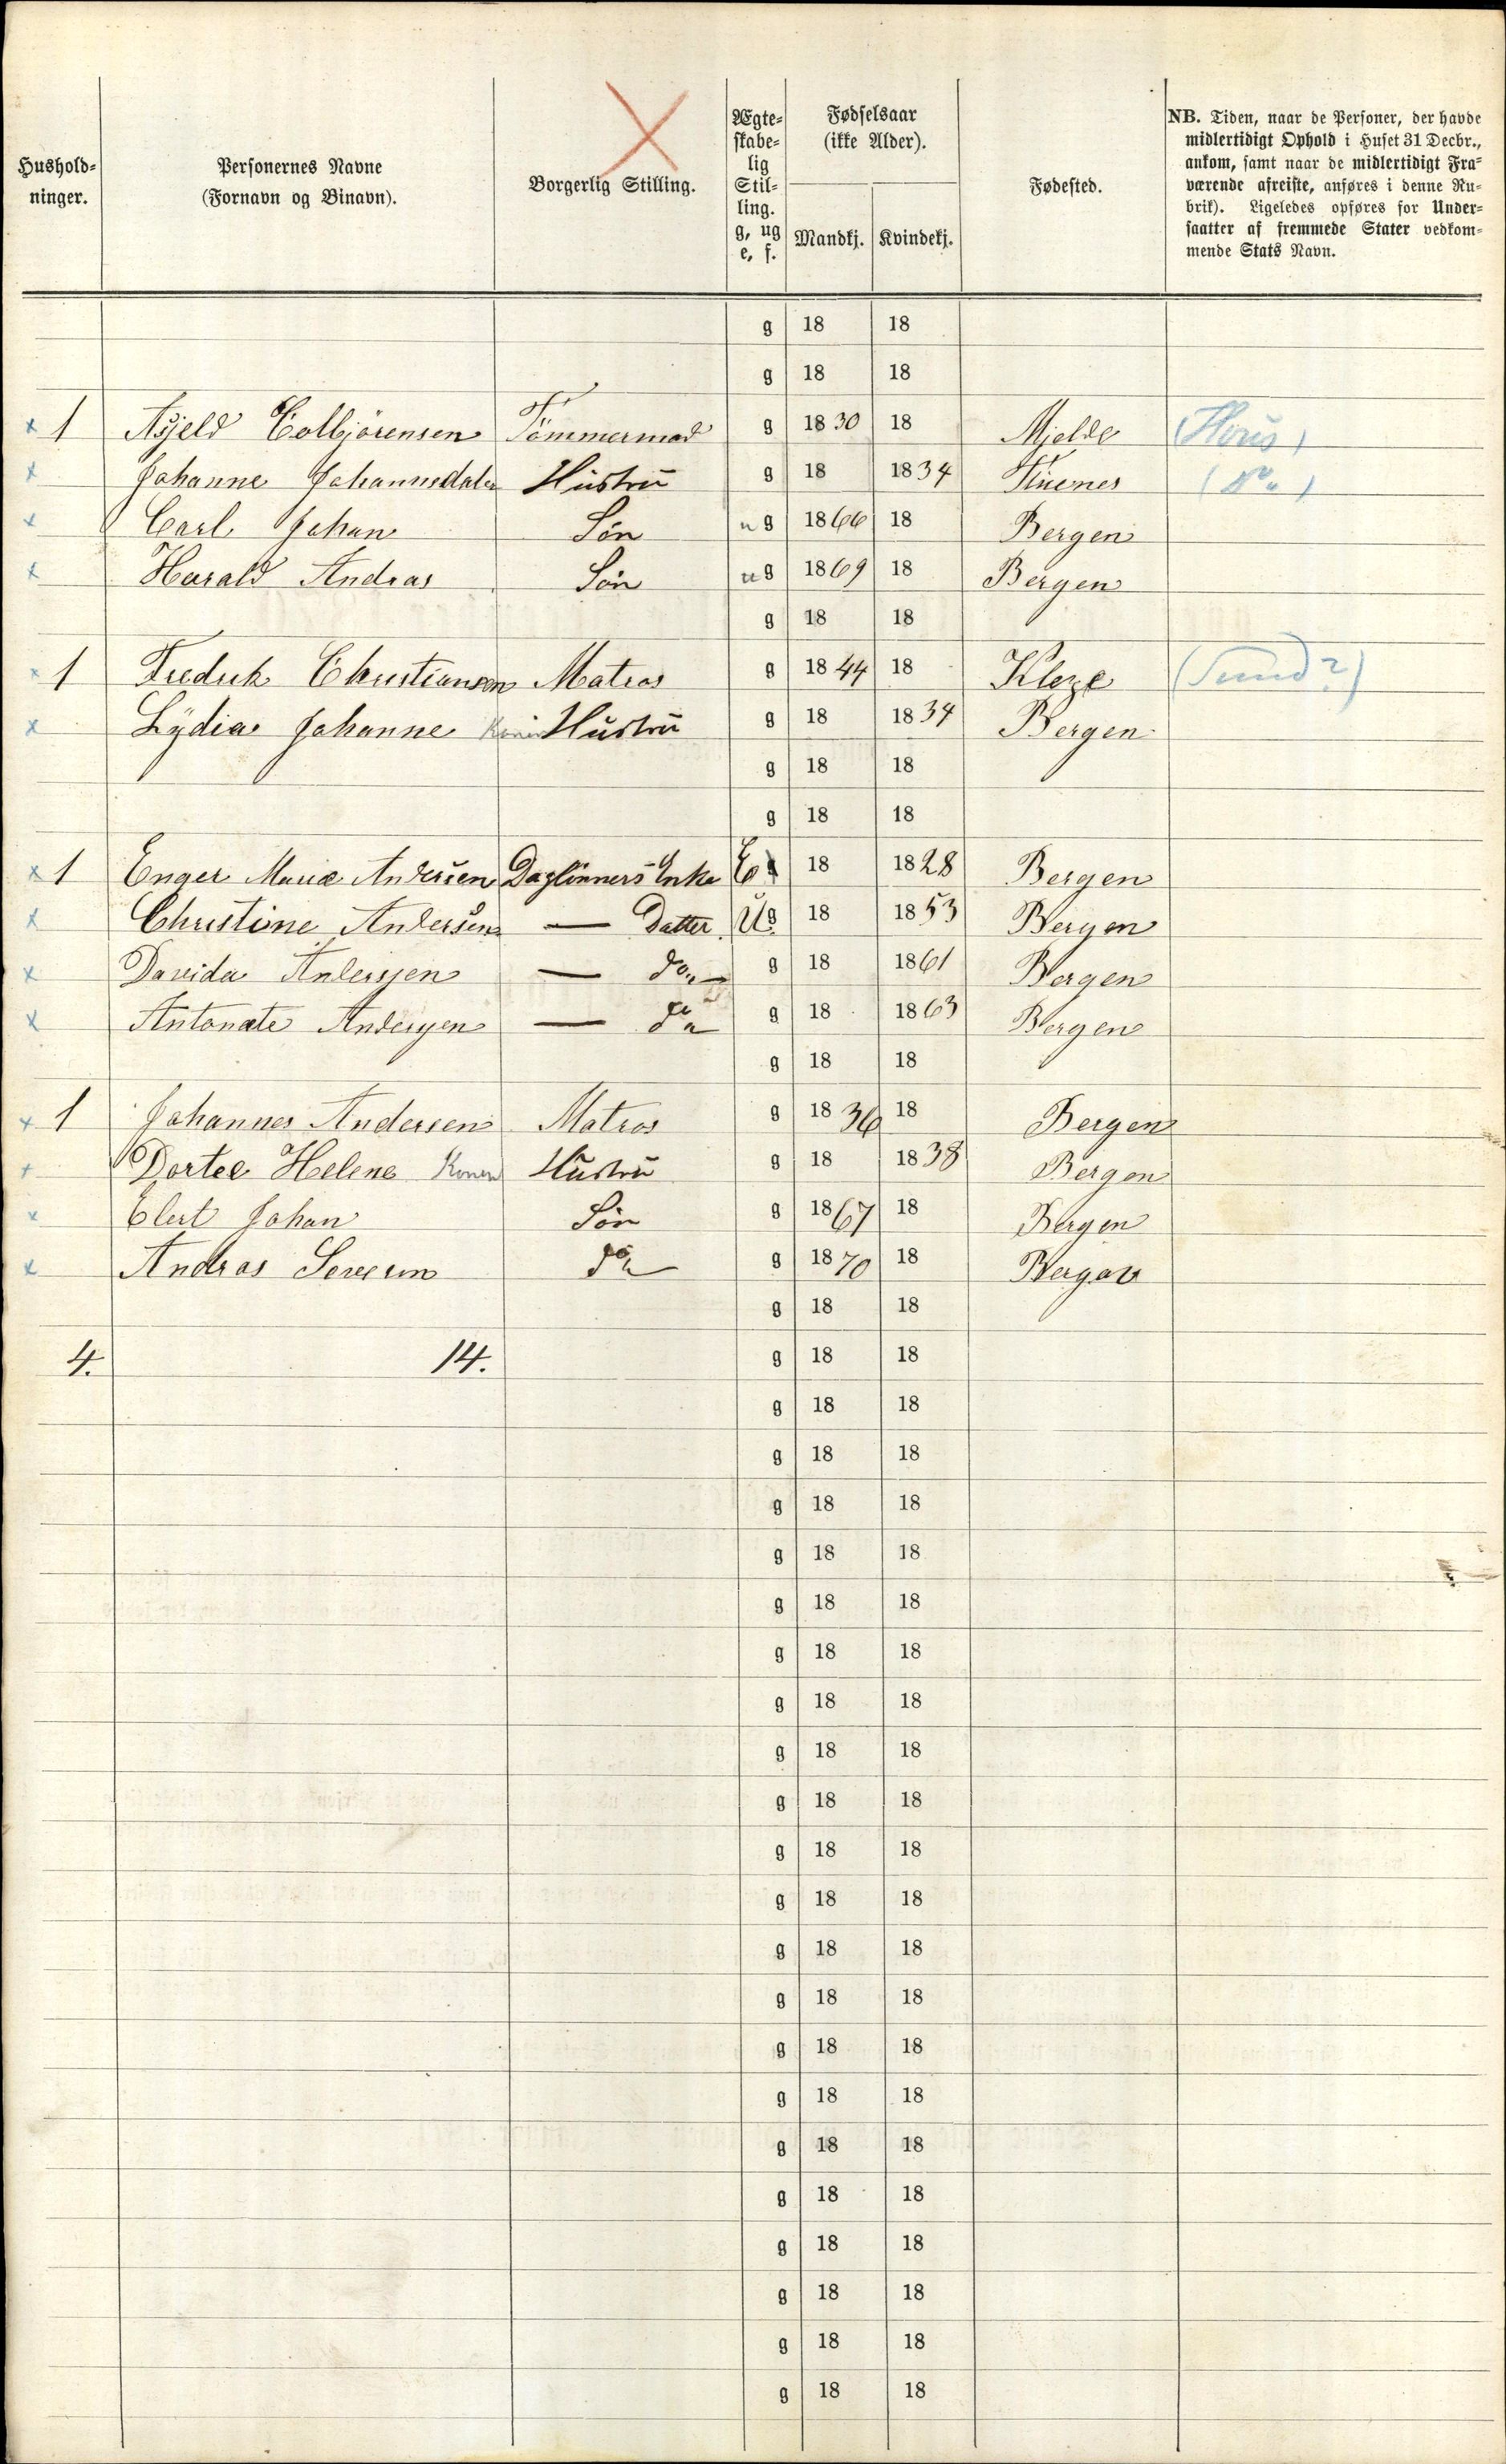 Hushold-
ninger.
Personernes Navne
(Fornavn og Binavn).
Borgerlig Stilling.
Ægte-
skabe-
lig
Stil-
ling.
g, ug
e, f.
Fødselsaar
(ikke Alder).
Mandkj. Kvindekj.
Fødested.
NB. Tiden, naar de Personer, der havde
midlertidigt Ophold i Huset 31 Decbr.,
ankom, samt naar de midlertidigt Fra-
værende afreiste, anføres i denne Ru-
brik). Ligeledes opføres for Under-
saatter af fremmede Stater vedkom-
mende Stats Navn.
g 18 18
g 18 18
x 1 Asjeld Colbjörensen Tömmermad g 1830 18 Mjelde (Hous)
x Johanne Johannsdater Hustru g 18 1834 (Do)
x Carl Johan Sön ug 1866 18 Bergen
x Harald Andras Sön ug 1869 18 Bergen
g 18 18
x 1 Fredrik Christiansen Matros g 1844 18 (Sund?)
x Lydia Johanne Konen Hustru g 18 1834 Bergen
g 18 18
g 18 18
x 1 Enger Marie Andersen Daglönners Enke E g 18 1828 Bergen
x Christine Andersen — Datter Ug 18 1853 Bergen
x Davida Andersen — do g 18 1861 Bergen
x Antonate Andersen — do g 18 1863 Bergen
g 18 18
x 1 Johannes Andersen Matros g 1836 18 Bergen
x Dortee Helene Konen Hustru g 18 1838 Bergen
x Elert Johan Sön g 1867 18 Bergen
x Andras Severin do g 1870 18 Bergen
g 18 18
4. 14. g 18 18
g 18 18
g 18 18
g 18 18
g 18 18
g 18 18
g 18 18
g 18 18
g 18 18
g 18 18
g 18 18
g 18 18
g 18 18
g 18 18
g 18 18
g 18 18
g 18 18
g 18 18
g 18 18
g 18 18
g 18 18
g 18 18